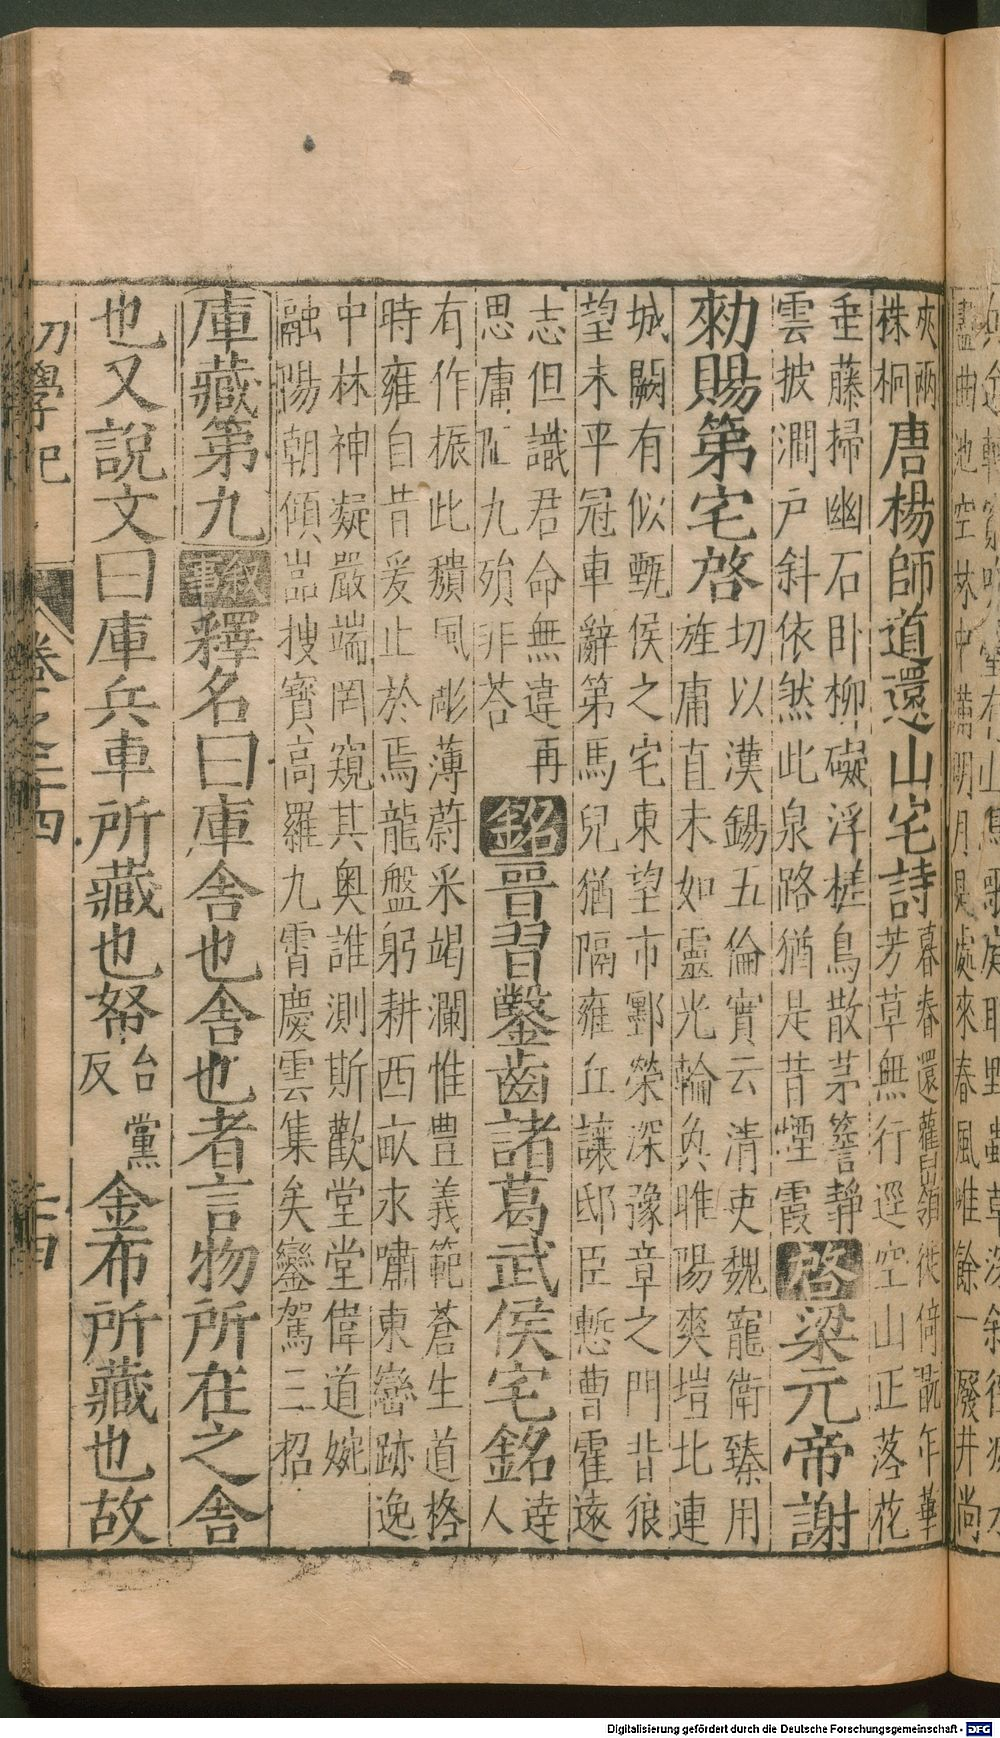 夾兩
株桐
唐楊師道還山宅詩
暮春還舊嶺徙倚翫年華
芳草無行逕空山正落花
垂藤掃幽石卧柳礙浮槎鳥散茅簷靜
雲披澗戸斜依然此泉路猶是昔煙霞
啓梁元帝謝
勑賜第宅啓
切以漢錫五倫實云清吏魏寵衛臻用
旌庸直未如靈光輪奐睢陽爽塏北連
城闕有似甄侯之宅東望市酆榮深豫章之門昔狼
望未平冠車辭第馬兒猶隔雍丘讓邸臣慙曹霍遠
志但識君命無違再
思庸陋九殞非荅
銘晉習鑿齒諸葛武侯宅銘
達
人
有作振此頹風彫薄蔚采鴟瀾惟豊義範蒼生道格
時雍自昔爰止於焉龍盤躬耕西畝永嘯東巒跡逸
中林神凝嚴端罔窺其奧誰測斯歡堂堂偉道婉
融陽朝傾嵓搜寳高羅九霄慶雲集矣鑾駕三招
庫藏第九
敘事釋名曰庫舎也舎也者言物所在之舎
也又説文曰庫兵車所藏也帑
台黨
反
金布所藏也故
初學記
卷之二十四
二十四
Digitalisierung gefördert durch die Deutsche Forschungsgemeinschaft - DFG